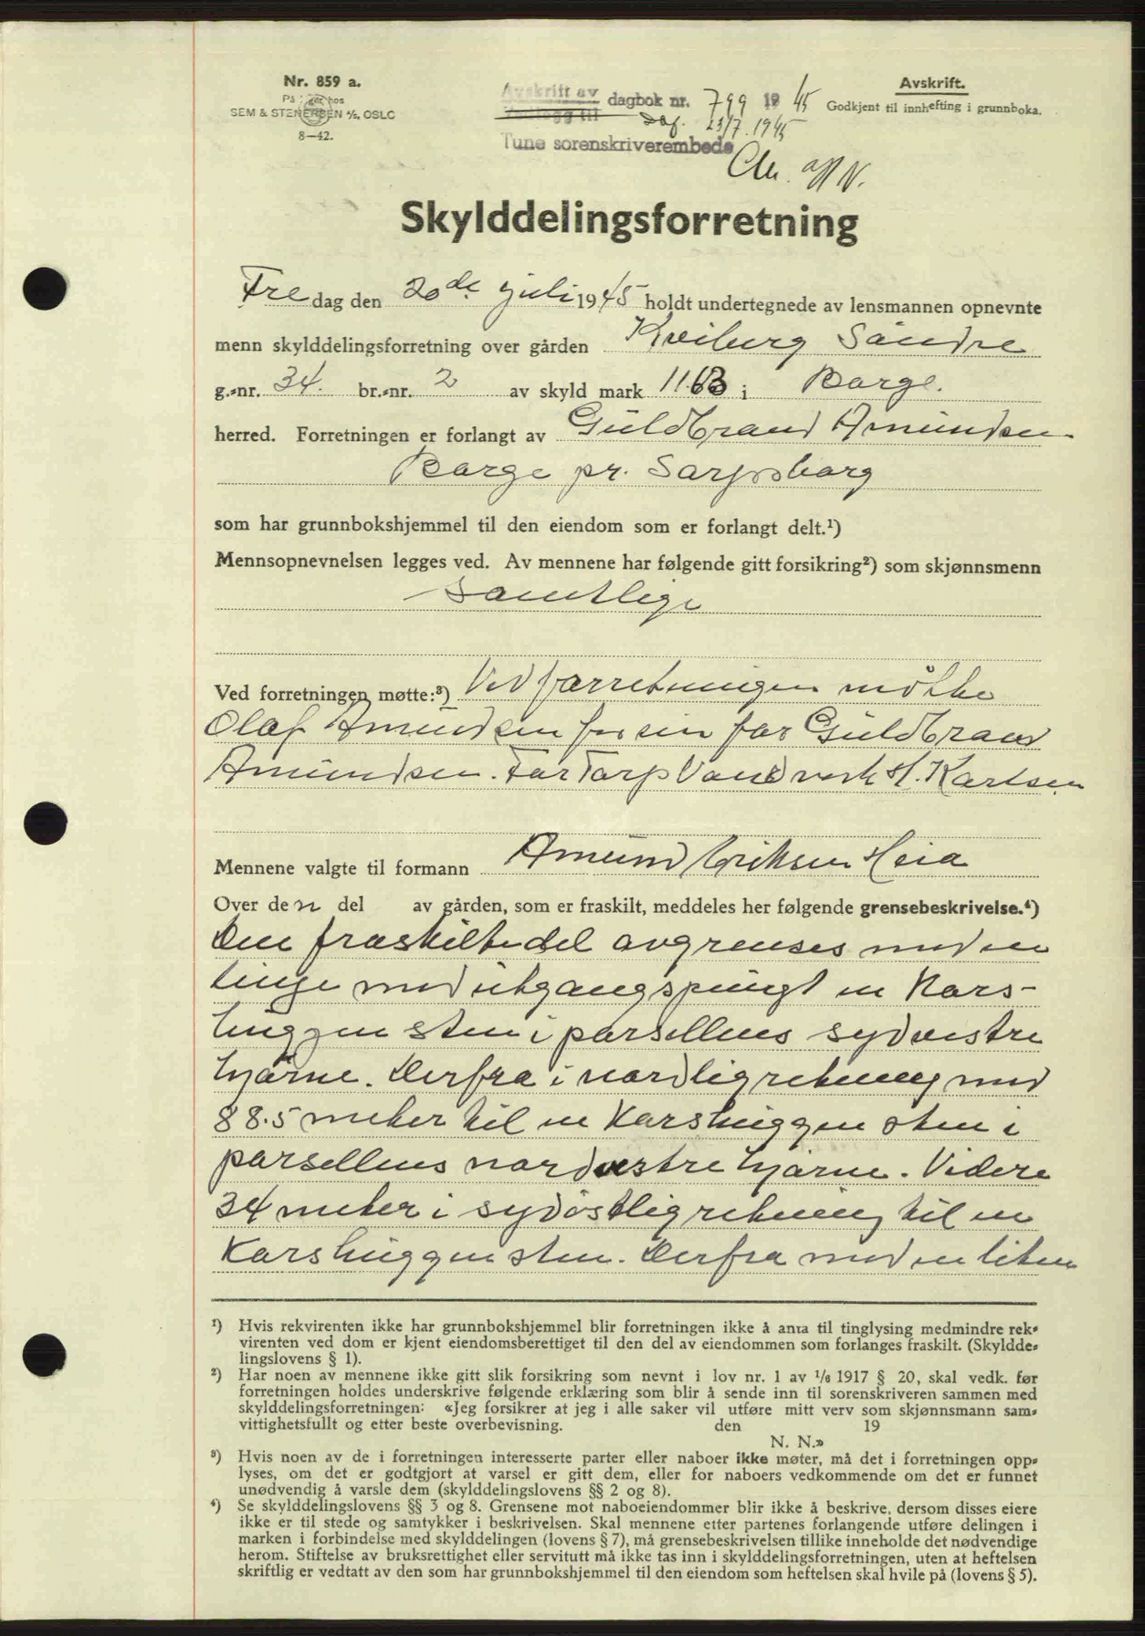 Nr. 859 a.
På lager hos
SEM & STENERSEN A/S, OSLO
8—42.
Avskrift av dagbok nr. 799 1945
Dag. 23/7. 1945
Tune sorenskriverembede
Avskrift.
Godkjent til innhefting i grunnboka.
Skylddelingsforretning
Fre dag den 20de juli 1945 holdt undertegnede av lensmannen opnevnte
menn skylddelingsforretning over gården Kveiberg Söndre
g.-nr. 34. br.-nr. 2 av skyld mark 11.63 i Borge.
herred. Forretningen er forlangt av Guldbrand Amundsen
Borge pr. Sarpsborg
som har grunnbokshjemmel til den eiendom som er forlangt delt.¹)
Mennsopnevnelsen legges ved. Av mennene har følgende gitt forsikring²) som skjønnsmenn
Samtlige
Ved forretningen møtte:³) Ved forretningen møtte
Olaf Amundsen for sin far Guldbrand
Amundsen. For Torp Vandverk H. Karlsen
Mennene valgte til formann Amund Eriksen Heia
Over den del av gården, som er fraskilt, meddeles her følgende grensebeskrivelse.⁴)
Den fraskilte del avgrenses med en
linje med utgangspungt en Kors-
huggen sten i parsellens sydvestre
hjørne. Derfra i nordlig retning med
88.5 meter til en Korshuggen sten i
parsellens nordvestre hjørne. Videre
34 meter i sydøstlig retning til en
Korshuggen sten. Derfra med en liten
¹) Hvis rekvirenten ikke har grunnbokshjemmel blir forretningen ikke å anta til tinglysing medmindre rek-
virenten ved dom er kjent eiendomsberettiget til den del av eiendommen som forlanges fraskilt. (Skyldde-
lingslovens § 1).
²) Har noen av mennene ikke gitt slik forsikring som nevnt i lov nr. 1 av 1/6 1917 § 20, skal vedk. før
forretningen holdes underskrive følgende erklæring som blir å sende inn til sorenskriveren sammen med
skylddelingsforretningen: «Jeg forsikrer at jeg i alle saker vil utføre mitt verv som skjønnsmann sam-
vittighetsfullt og etter beste overbevisning. den 19
N. N.»
³) Hvis noen av de i forretningen interesserte parter eller naboer ikke møter, må det i forretningen opp-
lyses, om det er godtgjort at varsel er gitt dem, eller for naboers vedkommende om det er funnet
unødvendig å varsle dem (skylddelingslovens §§ 2 og 8).
⁴) Se skylddelingslovens §§ 3 og 8. Grensene mot naboeiendommer blir ikke å beskrive, dersom disses eiere
ikke er til stede og samtykker i beskrivelsen. Skal mennene etter partenes forlangende utføre delingen i
marken i forbindelse med skylddelingen (lovens § 7), må grensebeskrivelsen tillike inneholde det nødvendige
herom. Stiftelse av bruksrettighet eller servitutt må ikke tas inn i skylddelingsforretningen, uten at heftelsen
skriftlig er vedtatt av den som har grunnbokshjemmel til den eiendom som heftelsen skal hvile på (lovens § 5).